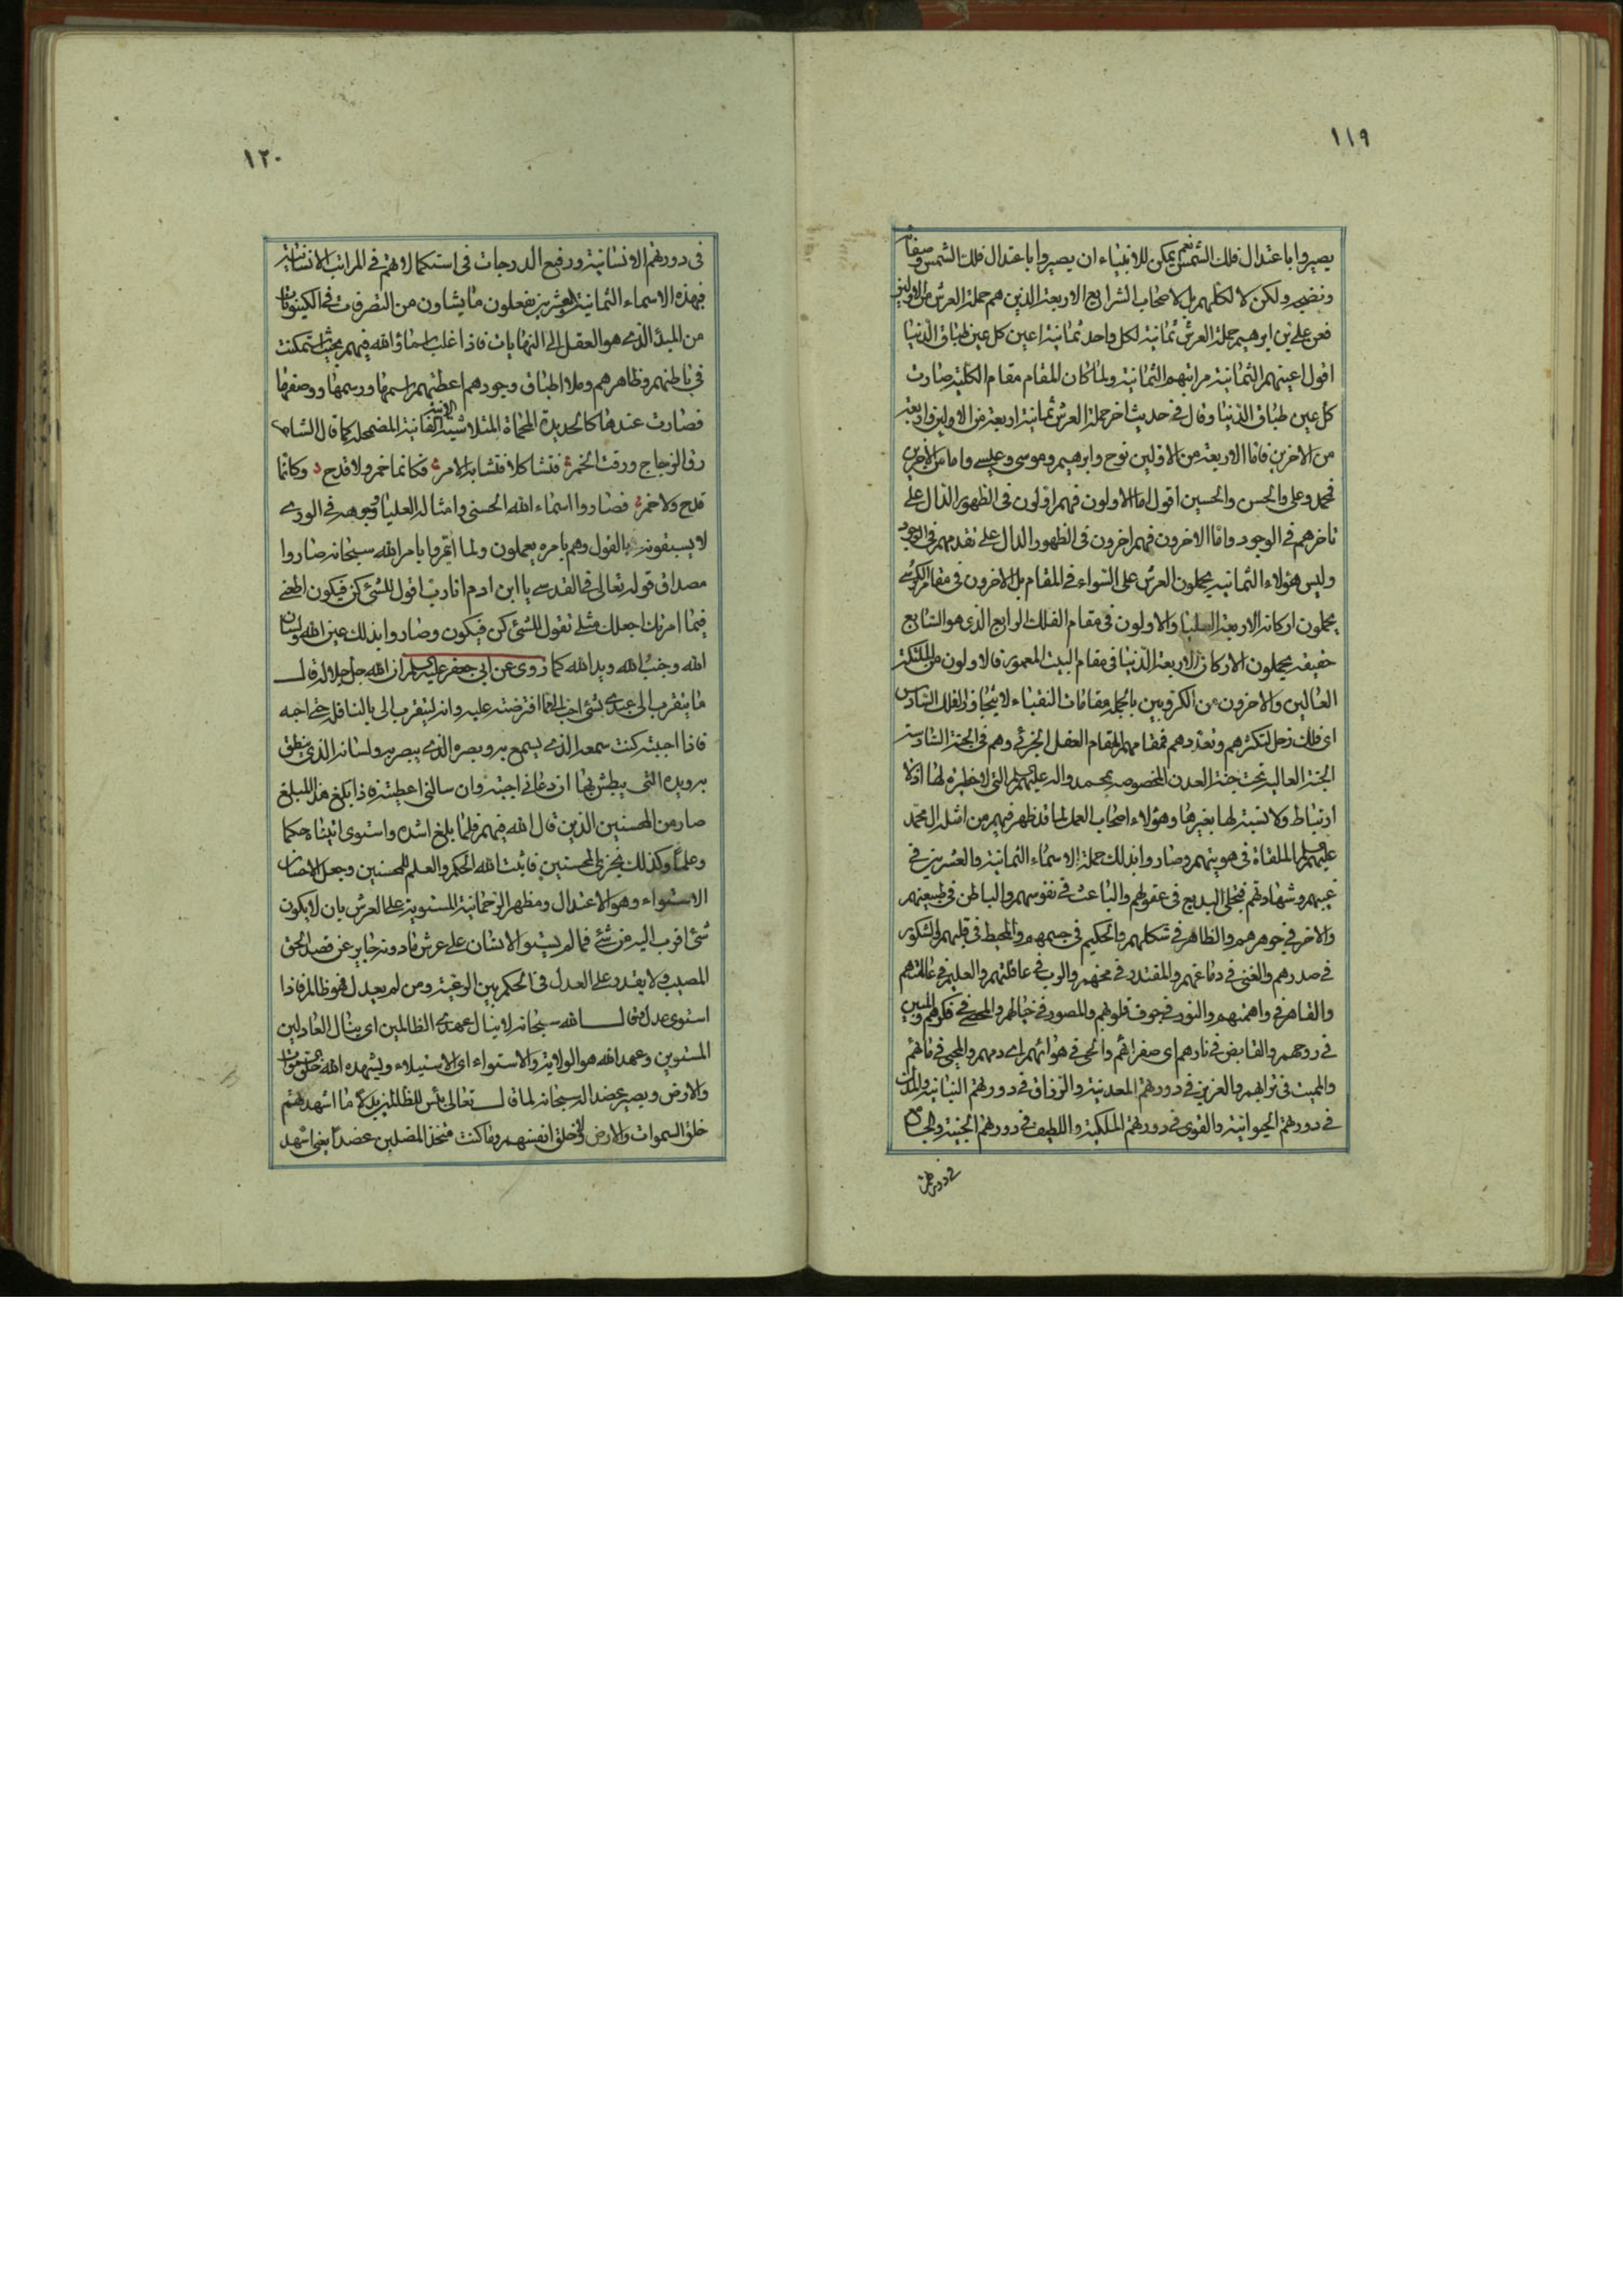 ١١٩
يصيروا باعتدال فلك الشمس نعم يمكن للانبياء ان يصيروا باعتدال فلك الشمس وصفائه
ونضجه ولكن لا لكلهم بل لاصحاب الشرايع الاربعة الذين هم حملة العرش من الاولين
فعن علي بن ابرهيم حملة العرش ثمانية لكل واحد ثمانية اعين كل عين طباق الدنيا
اقول اعينهم الثمانية مراتبهم الثمانية ولما كان المقام مقام الكلية صارت
كل عين طباق الدنيا وقال في حديث اخر حملة العرش ثمانية اربعة من الاولين واربعة
من الاخرين فاما الاربعة من الاولين نوح وابرهيم وموسى وعيسى واما من الاخرين
فمحمد وعلي والحسن والحسين اقول اما الاولون فهم اولون في الظهور الدال على
تاخرهم في الوجود واما الاخرون فهم اخرون في الظهور الدال على تقدمهم في الوجود
وليس هؤلاء الثمانية يحملون العرش على السواء في المقام بل الاخرون في مقام الكرسي
يحملون اركانه الاربعة العليا والاولون في مقام الفلك الرابع الذي هو السابع
حقيقة يحملون الاركان الاربعة الدنيا في مقام البيت المعمور فالاولون من الملئكة
العالين والاخرون من الكروبين بالجملة مقامات النقباء لا يتجاوز الفلك السادس
اي فلك زحل لتكثرهم وتعددهم فمقامهم المقام العقل الجزئي وهم في الجنة السادسة
الجنة العالية تحت جنة العدن المخصوصة بمحمد واله عليهم السلام التي لا حظيرة لها اذ لا
ارتباط ولا نسبة لها بغيرها وهؤلاء اصحاب العمل لما قد ظهر فيهم من امثلة ال محمد
عليهم السلام الملقاة في هويتهم وصاروا بذلك حملة الاسماء الثمانية والعشرين في
غيبهم وشهادتهم فتجلى البديع في عقولهم والباعث في نفوسهم والباطن في طبيعتهم
والاخر في جوهرهم والظاهر في شكلهم والحكيم في جسمهم والمحيط في قلبهم والشكور
في صدرهم والغني في دماغهم والمقتدر في مخهم والرب في عاقلتهم والعليم في عالمتهم
والقاهر في واهمتهم والنور في جوف قلوبهم والمصور في خيالهم والمحصي في فكرهم والمبين
في روحهم والقابض في نارهم اي صفرائهم والحي في هوائهم اي دمهم والمحيي في مائهم
والمميت في ترابهم والعزيز في دورتهم المعدنية والرزاق في دورتهم النباتية والمذل
في دورتهم الحيوانية والقوي في دورتهم الملكية واللطيف في دورتهم الجنية والجامع
في دورتهم
١٢٠
في دورتهم الانسانية ورفيع الدرجات في استكمالاتهم في المراتب الانسانية
فبهذه الاسماء الثمانية والعشرين يفعلون ما يشاون من التصرفات في الكينونات
من المبدأ الذي هو العقل الى النهايات فاذا غلب اسماؤ الله فيهم بحيث استمكنت
في باطنهم وظاهرهم وملا اطباق وجودهم اعطتهم اسمها ورسمها ووصفها
فصارت عندها كالحديدة المحماة المتلاشية الانية الفانية المضمحلة كما قال الشاعر
رق الزجاج ورقت الخمر فتشاكلا فتشابه الامر فكانما خمر ولا قدح وكانما
قدح ولا خمر فصاروا اسماء الله الحسنى وامثاله العليا ووجوهه في الورى
لا يسبقونه بالقول وهم بامره يعملون ولما ائتمروا بامر الله سبحانه صاروا
مصداق قوله تعالى في القدسي يا ابن ادم انا رب اقول للشئ كن فيكون اطعني
فيما امرتك اجعلك مثلي تقول للشئ كن فيكون وصاروا بذلك عين الله ولسان
الله وجنب الله ويد الله كما روى عن ابي جعفر عليه السلم ان الله جل جلاله قال
ما يتقرب الي عبدي بشئ احب الي مما افترضته عليه وانه ليتقرب الي بالنافلة حتى احبه
فاذا احببته كنت سمعه الذي يسمع به وبصره الذي يبصر به ولسانه الذي ينطق
به ويده التي يبطش بها ان دعاني اجبته وان سالني اعطيته فاذا بلغ هذا المبلغ
صار من المحسنين الذين قال الله فيهم فلما بلغ اشده واستوى اتيناه حكما
وعلما وكذلك نجزي المحسنين فاثبت الله الحكم والعلم للمحسنين وجعل الاحسان
الاستواء وهو الاعتدال ومظهر الرحمانية المستوية على العرش بان لا يكون
شئ اقرب اليه من شئ فما لم يستو الانسان على عرش ما دونه جاير عن قصد الحق
المصيب ولا يقدر على العدل في الحكم بين الرعية ومن لم يعدل فهو ظالم فاذا
استوى عدل قال الله سبحانه لا ينال عهدي الظالمين اي ينال العادلين
المستوين وعهد الله هو الولاية والاستواء اي الاستيلاء ويشهده الله خلق السموات
والارض ويصير عضدا له سبحانه لما قال تعالى بئس للظالمين بدلا ما اشهدتهم
خلق السموات والارض ولا خلق انفسهم وما كنت متخذ المضلين عضدا يعني اشهد